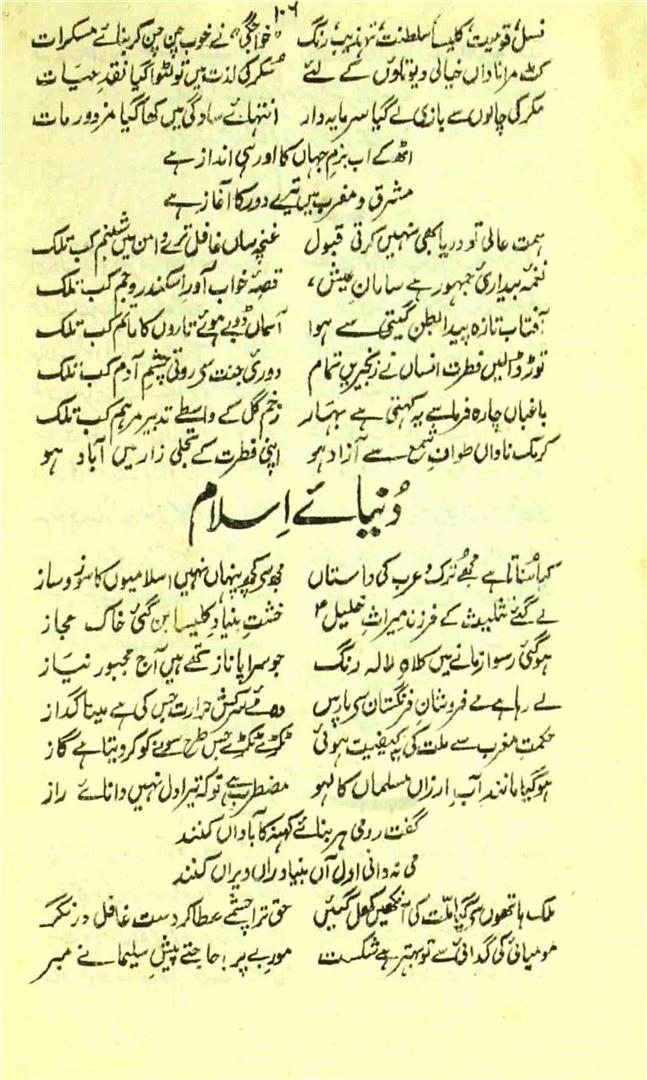 ۱۰۶
نسل، قومیت، کلیسا، سلطنت، تہذیب، رنگ "خواجگی" نے خوب چن چن کر بنائے مسکرات
کٹ مرا ناداں خیالی دیوتاؤں کے لئے سکر کی لذت میں تو لٹوا گیا نقد حیات
مکر کی چالوں سے بازی لے گیا سرمایہ دار انتہائے سادگی میں کھا گیا مزدور مات
اٹھ کے اب بزمِ جہاں کا اور ہی انداز ہے
مشرق و مغرب میں تیرے دور کا آغاز ہے
ہمت عالی تو دریا بھی نہیں کرتی قبول غنچہ ساں غافل ترے دامن میں شبنم کب تلک
نغمۂ بیداریٔ جمہور ہے سامان عیش، قصۂ خواب آور اسکندر و جم کب تلک
آفتاب تازہ پیدا بطن گیتی سے ہوا آسماں ڈوبے ہوئے تاروں کا ماتم کب تلک
توڑ ڈالیں فطرت انساں نے زنجیریں تمام دوریٔ جنت سے روتی چشم آدم کب تلک
باغبان چارہ فرما سے یہ کہتی ہے بہار زخم گل کے واسطے تدبیر مرہم کب تلک
کرمک ناداں طواف شمع سے آزاد ہو اپنی فطرت کے تجلی زار میں آباد ہو
دُنیائے اِسلام
کیا سُناتا ہے مجھے تُرک و عرب کی داستاں مجھ سے کچھ پنہاں نہیں اسلامیوں کا سوز و ساز
لے گئے تثلیث کے فرزند میراثِ خلیلؑ خشتِ بنیادِ کلیسا بن گئی خاک حجاز
ہو گئی رسوا زمانے میں کلاہِ لالہ رنگ جو سراپا ناز تھے ہیں آج مجبور نیاز
لے رہا ہے مے فروشانِ فرنگستاں سے پارس وہ مئے سرکش حرارت جس کی ہے مینا گداز
حکمتِ مغرب سے ملت کی یہ کیفیت ہوئی ٹکڑے ٹکڑے جس طرح سونے کو کر دیتا ہے گاز
ہو گیا مانند آب ارزاں مسلماں کا لہو مضطرب ہے تو کہ تیرا دل نہیں دانائے راز
گفت رومی ہر بنائے کہنہ کآباداں کنند
می نہ دانی اول آں بنیاد را ویراں کنند
ملک ہاتھوں سے گیا ملّت کی آنکھیں کھل گئیں حق ترا چشمے عطا کردست غافل در نگر
مومیائی کی گدائی سے تو بہتر ہے شکست مور بے پر! حاجتے پیشِ سلیمانے مبر